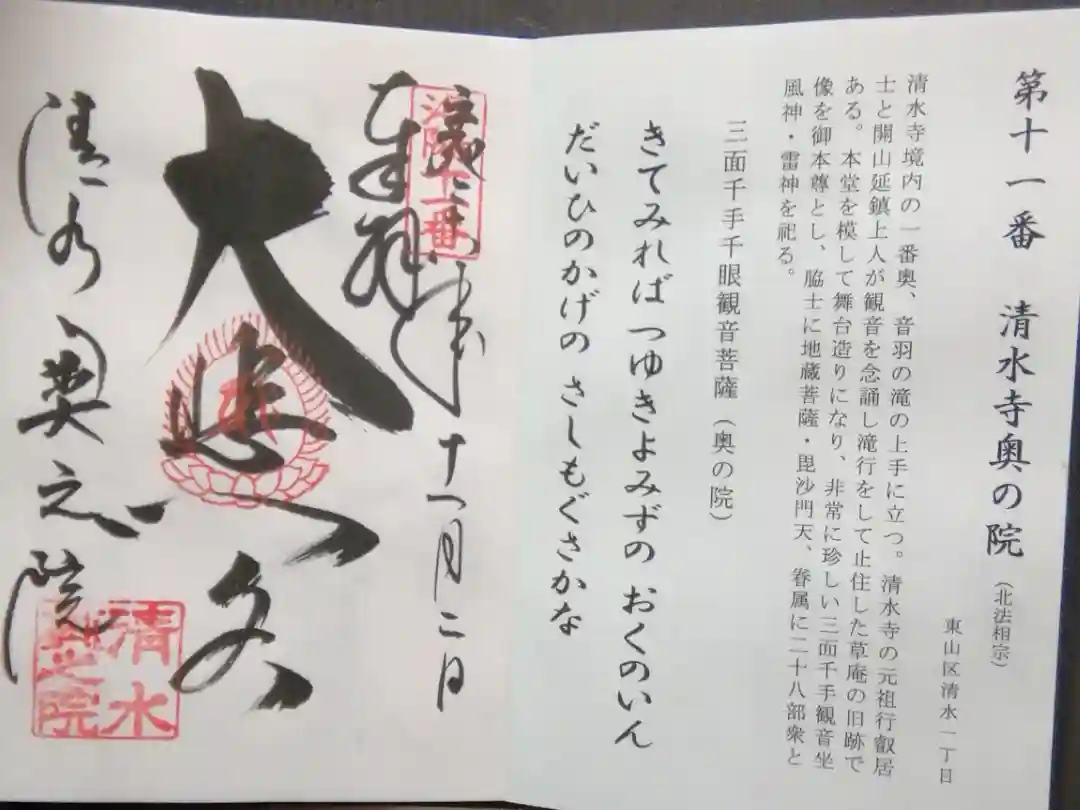 第十一番 清水寺奥の院（北法相宗）
東山区清水一丁目
清水寺境内の一番奥、音羽の滝の上手に立つ。清水寺の元祖行叡居
士と開山延鎮上人が観音を念誦し滝行をして止住した草庵の旧跡で
ある。本堂を模して舞台造りになり、非常に珍しい三面千手観音坐
像を御本尊とし、脇士に地蔵菩薩・毘沙門天、眷属に二十八部衆と
風神・雷神を祀る。
三面千手千眼観音菩薩（奥の院）
きてみれば つゆきよみずの おくのいん
だいひのかげの さしもぐさかな
洛陽十一番
月二日
奉拝
大悲閣
清水奥之院
清水
奥之院